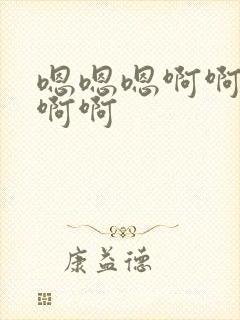 嗯嗯嗯啊啊
啊啊
康益德